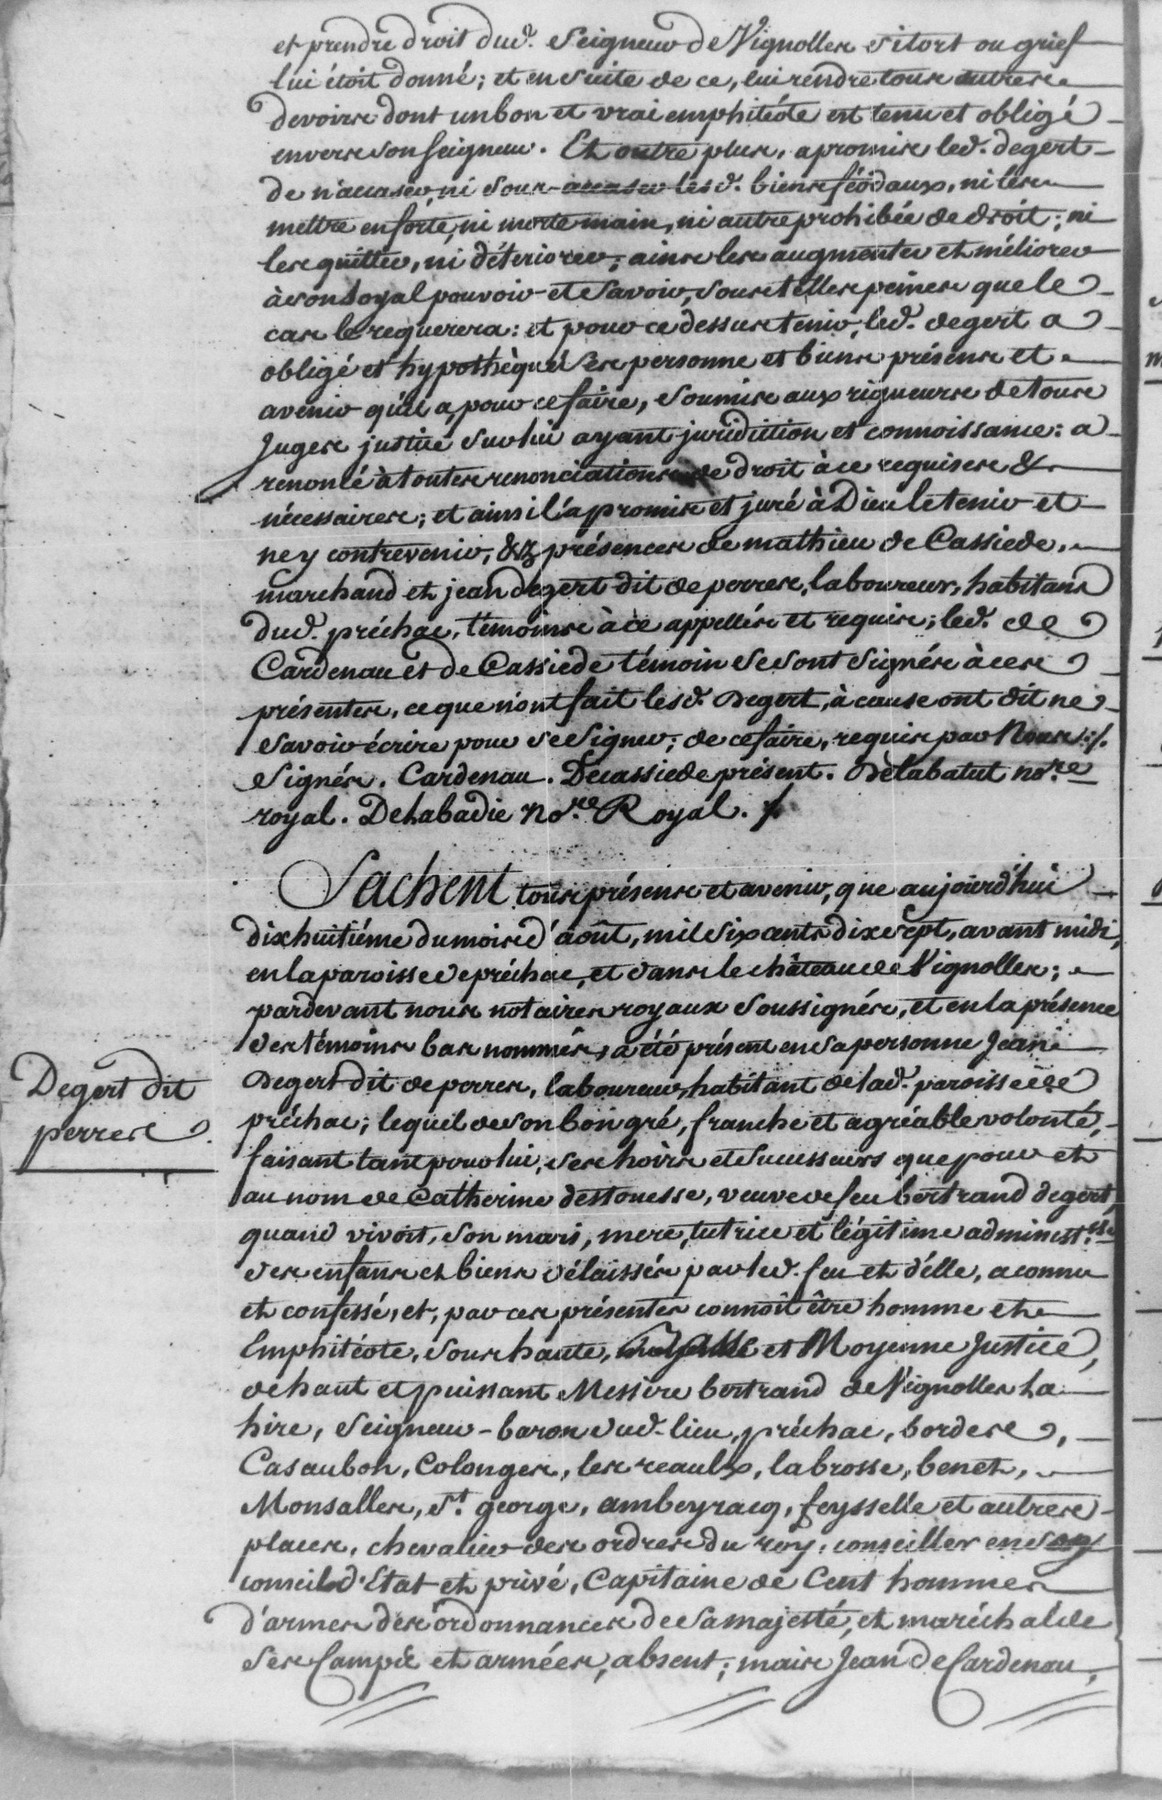 et prendre droit dud. Seigneur de Vignolles si tort ou grief
lui étoit donné; et en suite de ce, lui rendre tous autres
devoirs dont un bon et vrai emphitéote est tenu et obligé
envers son seigneur. Et outre plus, a promis led. degert
de n'acaser, ni sous-acaser lesd. biens féodaux, ni les
mettre en forte, ni morte main, ni autre prohibée de droit; ni
les quitter, ni déteriorer; ains les augmenter et méliorer
à son loyal pouvoir et savoir, sous telles peines que le
cas le requerera: et pour ce dessus tenir, led. degert a
obligé et hypothèqué ses personne et biens présens et
avenir qu'il a, pour ce faire, soumis aux rigueurs de tous
Juges justice sur lui ayant juridiction et connoissance: a
renoncé à toutes renonciations de droit à ce requises &
nécessaires; et ainsi l'a promis et juré à Dieu le tenir et
ne y contrevenir, &c présences de mathieu de Cassiede,
marchand et jean degert dit de perres, laboureur, habitans
dud. préchac, témoins à ce appellés et requis; led. de
Cardenau et de Cassiede témoin se sont signés à ces
présentes, ce que n'ont fait lesd. Degert, à cause ont dit ne
savoir écrire pour se signer; de ce faire, requis par Nous /.
Signés. Cardenau. Decassiede présent. Delabatut no.re
royal. Delabadie No.re Royal. /.
Sachent tous présens et avenir, que aujourd'hui
dixhuitiéme du mois d'août, mil six cents dix sept, avant midi,
en la paroisse de préchac, et dans le château de Vignolles;
pardevant nous notaires royaux soussignés, et en la présence
des témoins bas nommés, a été présent en sa personne Jean
Degert dit de perres, laboureur, habitant de lad. paroisse de
préchac; lequel de son bon gré, franche et agréable volonté,
faisant tant pour lui, ses hoirs et successeurs que pour et
au nom de Catherine destouesse, veuve de feu bertrand degert,
quand vivoit, son mari, mere, tutrice et légitime administ.sse
des enfans et biens délaissés par led. feu et d'elle, a connu
et confessé, et, par ces présentes connoît être homme et
Emphitéote, sous haute, basse et Moyenne Justice,
de haut et puissant Messire bertrand de Vignolles La
hire, Seigneur-baron dud. lieu, préchac, bordes,
Casaubon, Colonges, les reaulx, labrosse, benet,
Monsalles, St. george, ambeyracq, feysselle et autres
places, chevalier des ordres du roy, conseiller en son
conseil d'Etat et privé, Capitaine de Cent hommes
d'armes des ordonnances de sa majesté, et maréchal de
ses Camps et armées, absent; mais Jean de Cardenau,
Degert dit
perres